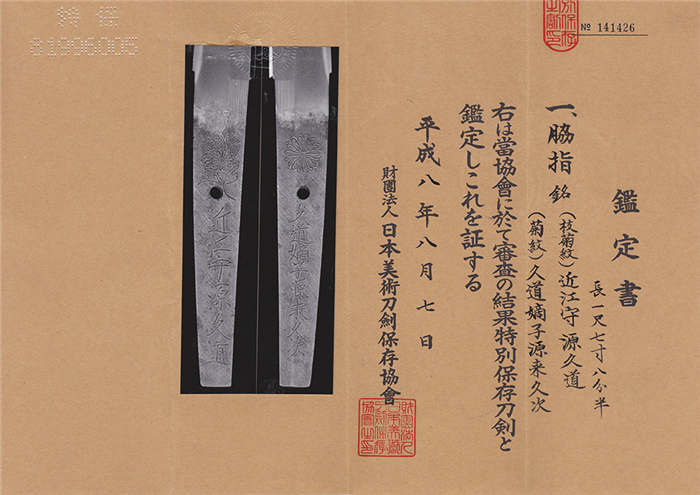 鑑定書
長一尺七寸八分半
一、脇指 銘 (枝菊紋)近江守源久道
(菊紋)久道嫡子源来久次
右は當協會に於て審査の結果特別保存刀剣と
鑑定しこれを証する
平成八年八月七日
財團法人 日本美術刀劍保存協會
№ 141426
81996005